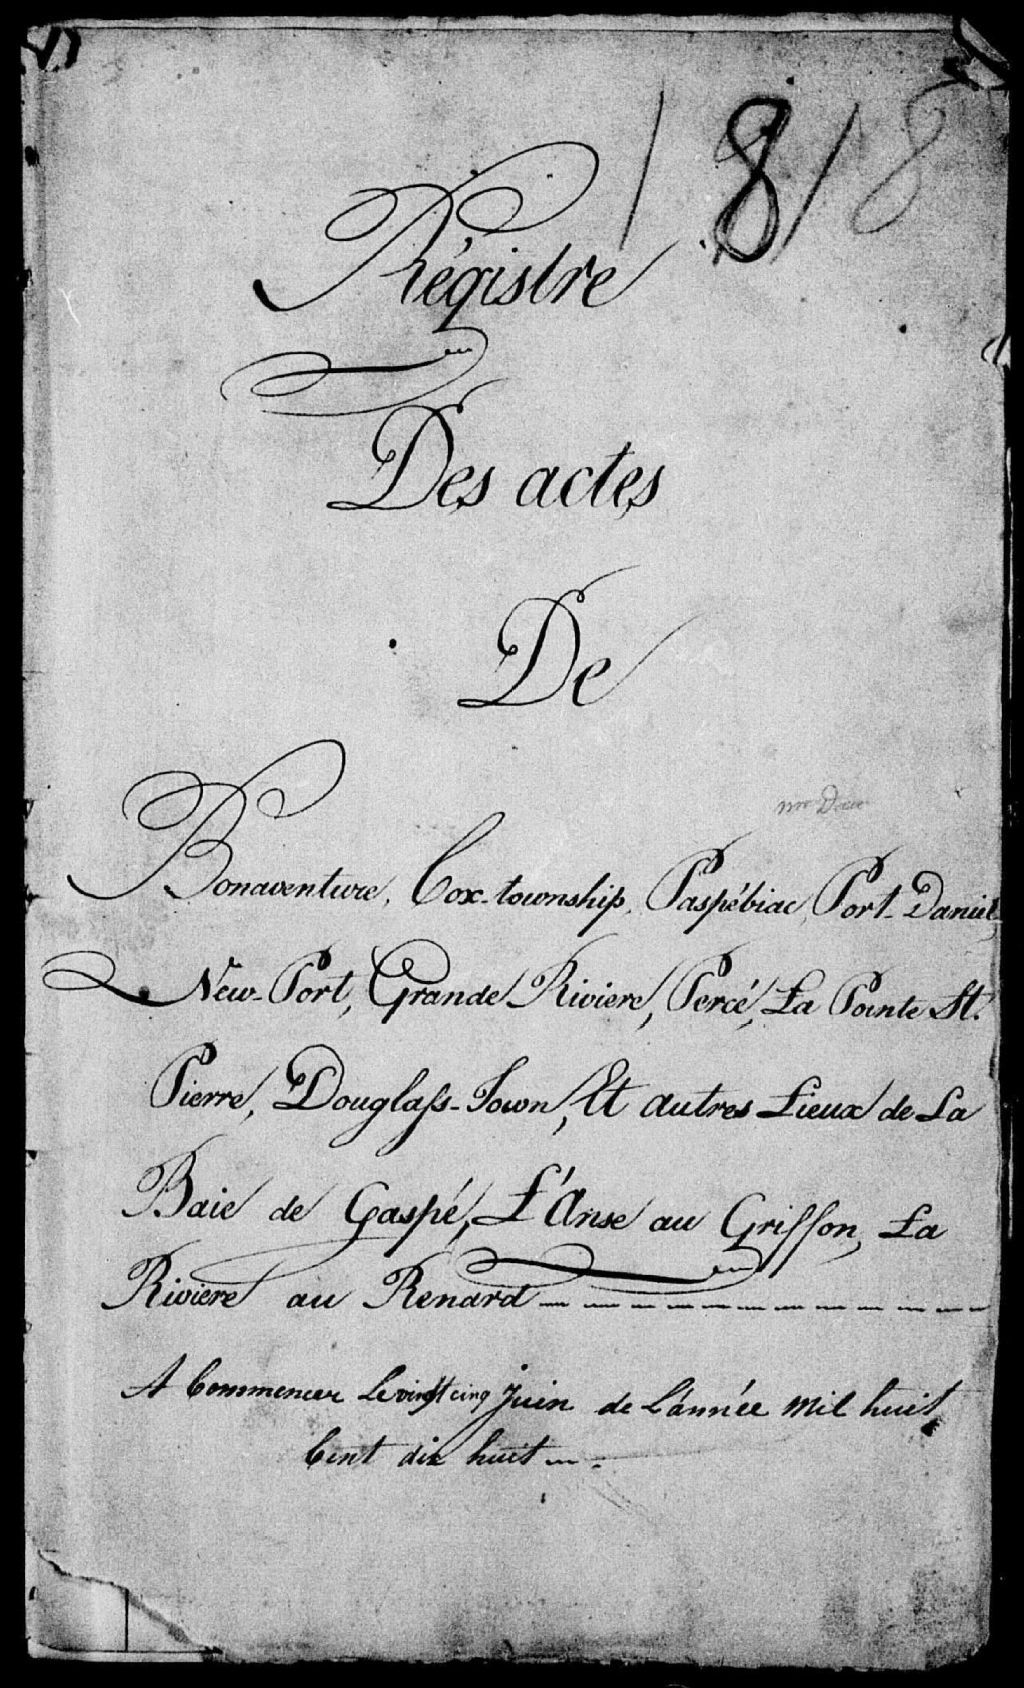 1818
Régistre
Des actes
De
Bonaventure, Cox-township, Paspébiac, Port-Daniel,
New-Port, Grande Riviere, Percé, La Pointe St.
Pierre, Douglass-Town, Et autres Lieux de La
Baie de Gaspé, L'Anse au Griffon, La
Riviere au Renard
A Commencer Le vingt cinq Juin de L'année mil huit
Cent dix huit